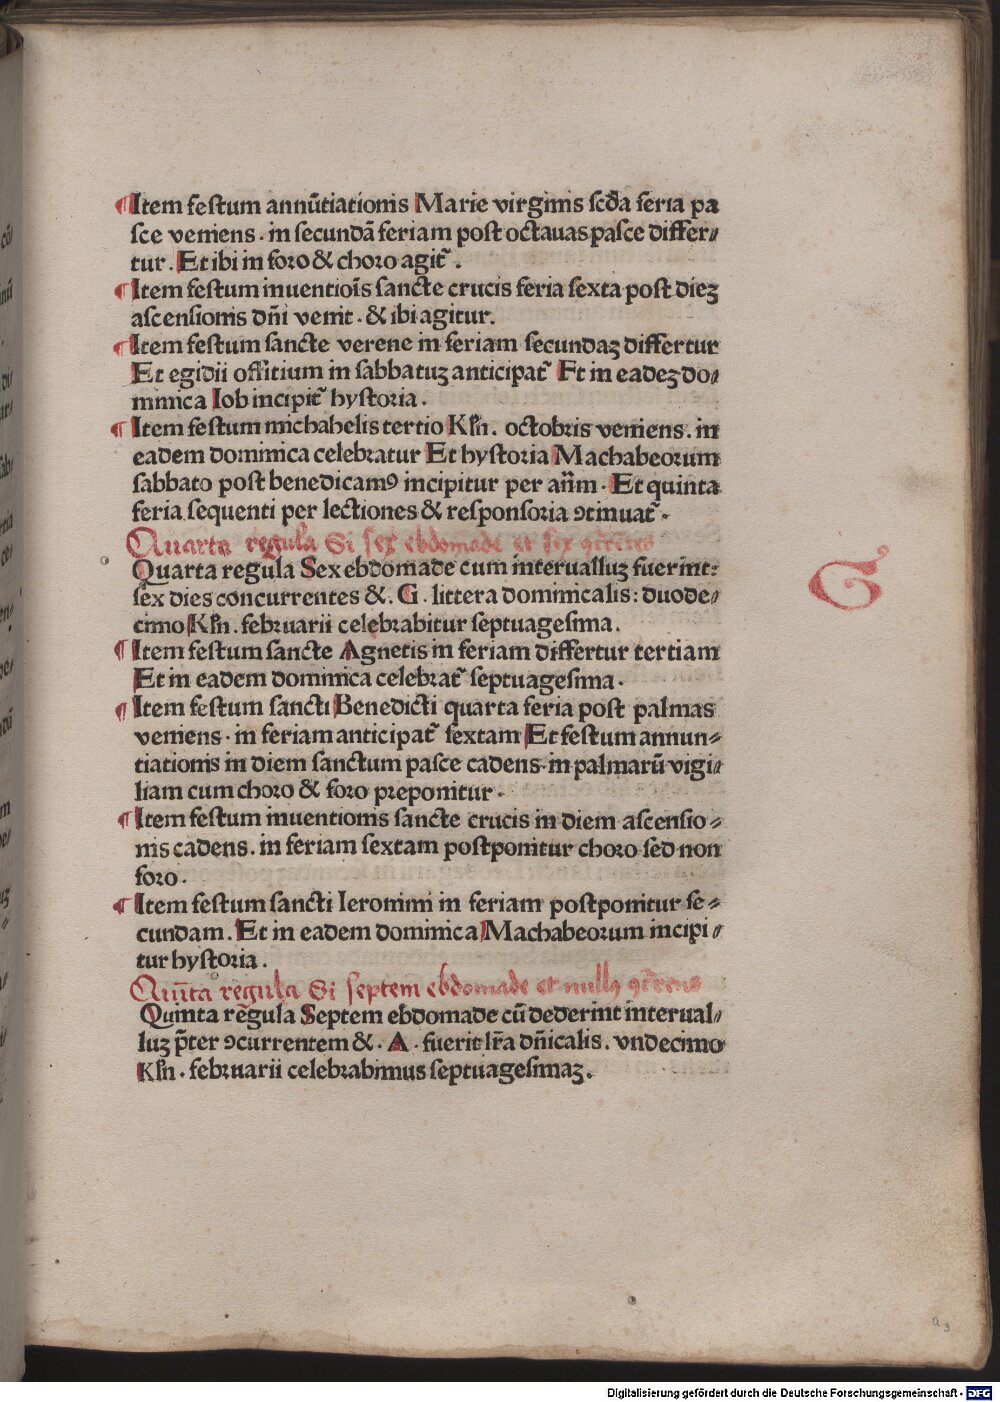 ¶Item festum annūtiationis Marie virginis scd̄a feria pa
sce veniens · in secundā feriam post octauas pasce differ⸗
tur . Et ibi in foro & choro agit᷑ .
¶Item festum inuentiōis sancte crucis feria sexta post dieꝫ
ascensionis dn̄i venit · & ibi agitur.
¶Item festum sancte verene in feriam secundaꝫ differtur
Et egidii offitium in sabbatuꝫ anticipat᷑ Et in eadeꝫ do⸗
minica Iob incipit᷑ hystoria .
¶Item festum michahelis tertio Kłn. octobris veniens . in
eadem dominica celebratur Et hystoria Machabeorum
sabbato post benedicamꝰ incipitur per an̄m · Et quinta
feria sequenti per lectiones & responsoria ↄtinuat᷑ .
Quarta regula Si sex ebdomade et sex ꝯcr̄entes
Quarta regula Sex ebdomade cum interualluꝫ fuerint:
sex dies concurrentes &. G . littera dominicalis : duode⸗
cimo Kłn . februarii celebrabitur septuagesima .
G
¶Item festum sancte Agnetis in feriam differtur tertiam
Et in eadem dominica celebrat᷑ septuagesima .
¶Item festum sancti Benedicti quarta feria post palmas
veniens · in feriam anticipat᷑ sextam Et festum annun⸗
tiationis in diem sanctum pasce cadens · in palmarū vigi⸗
liam cum choro & foro preponitur .
¶Item festum inuentionis sancte crucis in diem ascensio⸗
nis cadens . in feriam sextam postponitur choro sed non
foro .
¶Item festum sancti Ieronimi in feriam postponitur se⸗
cundam . Et in eadem dominica Machabeorum incipi⸗
tur hystoria .
Quīta regula Si septem ebdomade et nullꝰ ꝯcr̄ens
Quinta regula Septem ebdomade cū dederint interual⸗
luꝫ p̄ter ↄcurrentem & . A . fuerit lr̄a dn̄icalis . vndecimo
Kłn · februarii celebrabimus septuagesimaꝫ .
a3
Digitalisierung gefördert durch die Deutsche Forschungsgemeinschaft - DFG